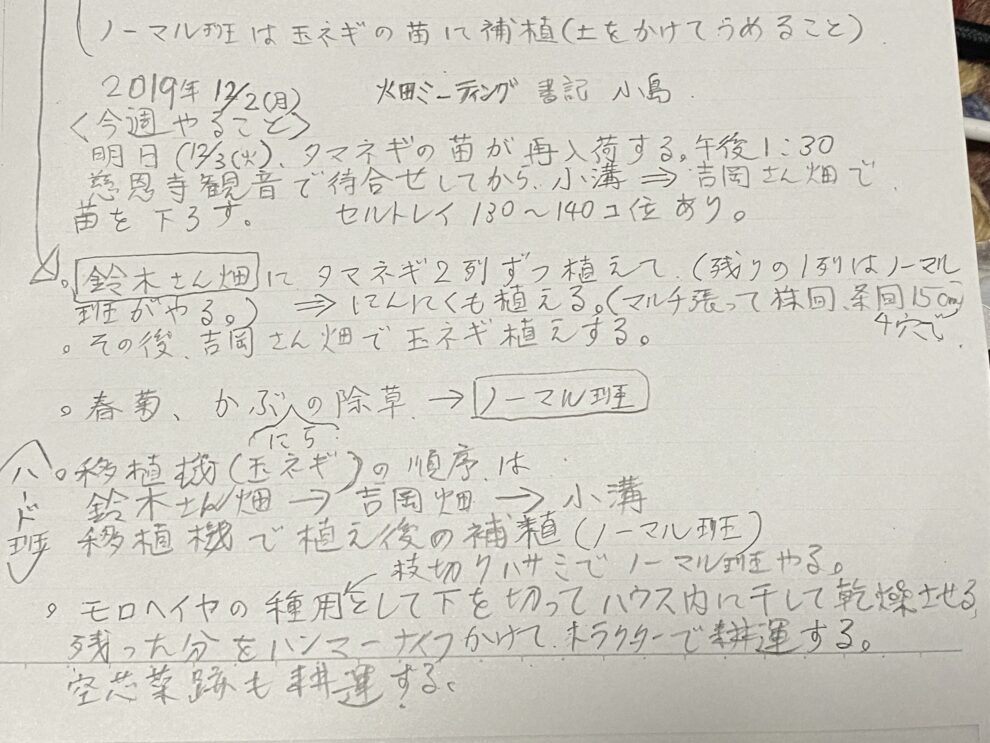 (ノーマル班は玉ネギの苗に補植(土をかけてうめること)
2019年12/2(月) 火田ミーティング 書記 小島
<今週やること>
明日(12/3(火)、タマネギの苗が再入荷する。午後1:30
慈恩寺観音で待合せしてから、小溝⇒吉岡さん畑で、
苗を下ろす。 セルトレイ130〜140コ位あり。
。鈴木さん畑にタマネギ2列ずつ植えて、(残りの1列はノーマル
班がやる。) ⇒にんにくも植える。(マルチ張って株間、条間15cm)
4穴で
。その後、吉岡さん畑で玉ネギ植えする。
。春菊、かぶ、の除草→ノーマル班
にら
ハード班
。移植機(玉ネギ)の順序は
鈴木さん畑→吉岡畑→小溝
移植機で植え後の補植(ノーマル班)
枝切りハサミでノーマル班やる。
。モロヘイヤの種用として下を切ってハウス内に干して乾燥させる、
残った分をハンマーナイフかけて、トラクターで耕運する。
空芯菜跡も耕運する、